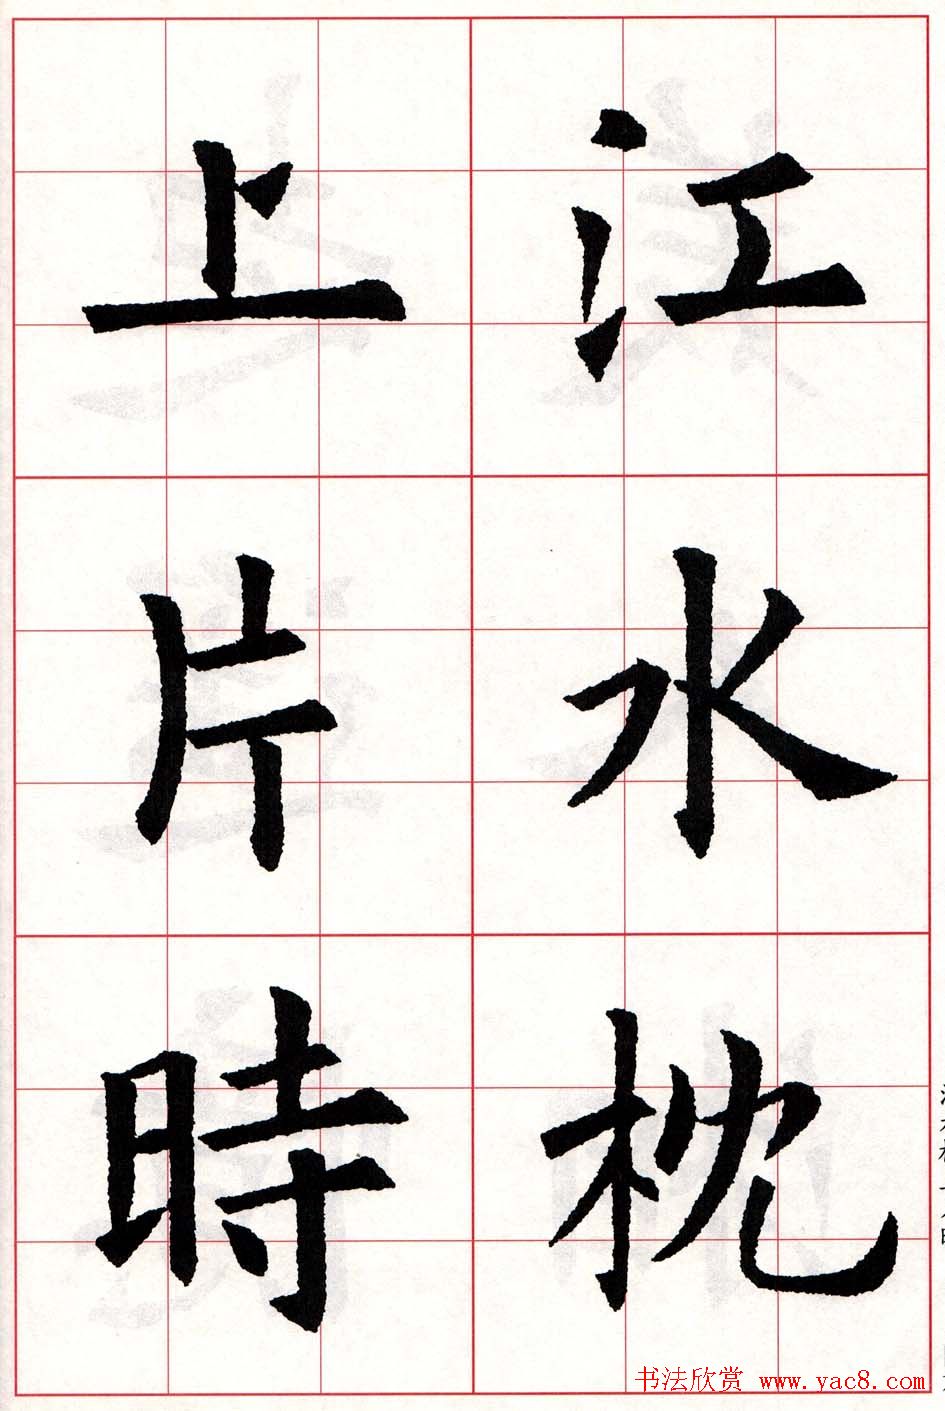 江水枕
上片時
书法欣赏 www.yac8.com